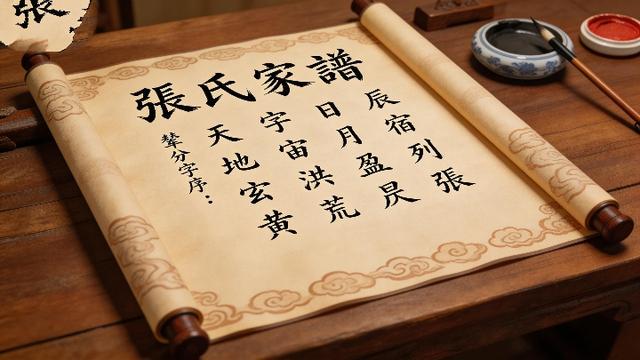 張
張氏家譜
輩分字序：
天地玄黃
宇宙洪荒
日月盈昃
辰宿列張